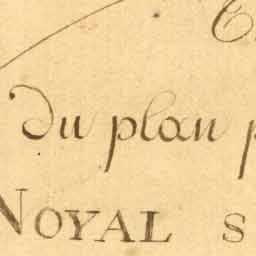 du plan
NOYAL S